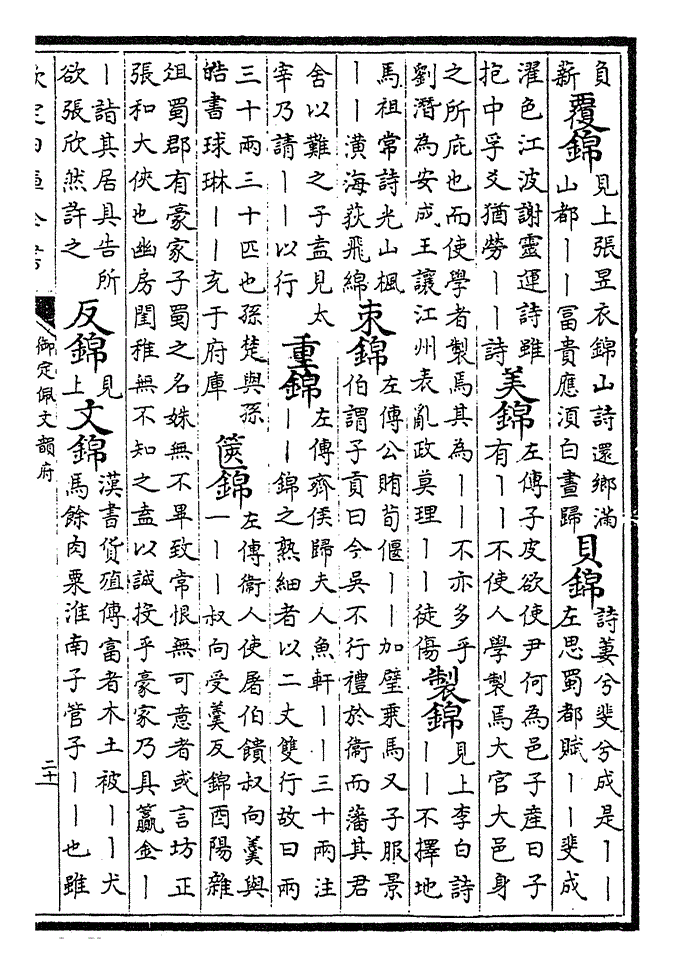 負
薪
覆錦
見上張昱衣錦山詩還鄉滿
山都丨丨冨貴應須白晝歸
貝錦
詩萋兮斐兮成是丨丨
左思蜀都賦丨丨斐成
濯色江波謝靈運詩雖
抱中孚爻猶勞丨丨詩
美錦
左傳子皮欲使尹何為邑子產曰子
有丨丨不使人學製焉大官大邑身
之所庇也而使學者製焉其為丨丨不亦多乎
劉潛為安成王讓江州表亂政莫理丨丨徒傷
製錦
見上李白詩
丨丨不擇地
馬祖常詩光山楓
丨丨潢海荻飛綿
束錦
左傳公賄荀偃丨丨加璧乘馬又子服景
伯謂子貢曰今吳不行禮於衛而藩其君
舍以難之子盍見太
宰乃請丨丨以行
重錦
左傳齊侯歸夫人魚軒丨丨三十兩注
丨丨錦之熟細者以二丈雙行故曰兩
三十兩三十匹也孫楚與孫
皓書球琳丨丨充于府庫
篋錦
左傳衛人使屠伯饋叔向羮與
一丨丨叔向受羮反錦酉陽雜
俎蜀郡有豪家子蜀之名姝無不畢致常恨無可意者或言坊正
張和大俠也幽房閨稚無不知之盍以誠投乎豪家乃具籯金丨
丨詣其居具告所
欲張欣然許之
反錦
見
上
文錦
漢書貨殖傳富者木土被丨丨犬
馬餘肉粟淮南子管子丨丨也雖
欽定四庫全書
御定佩文韻府
二十